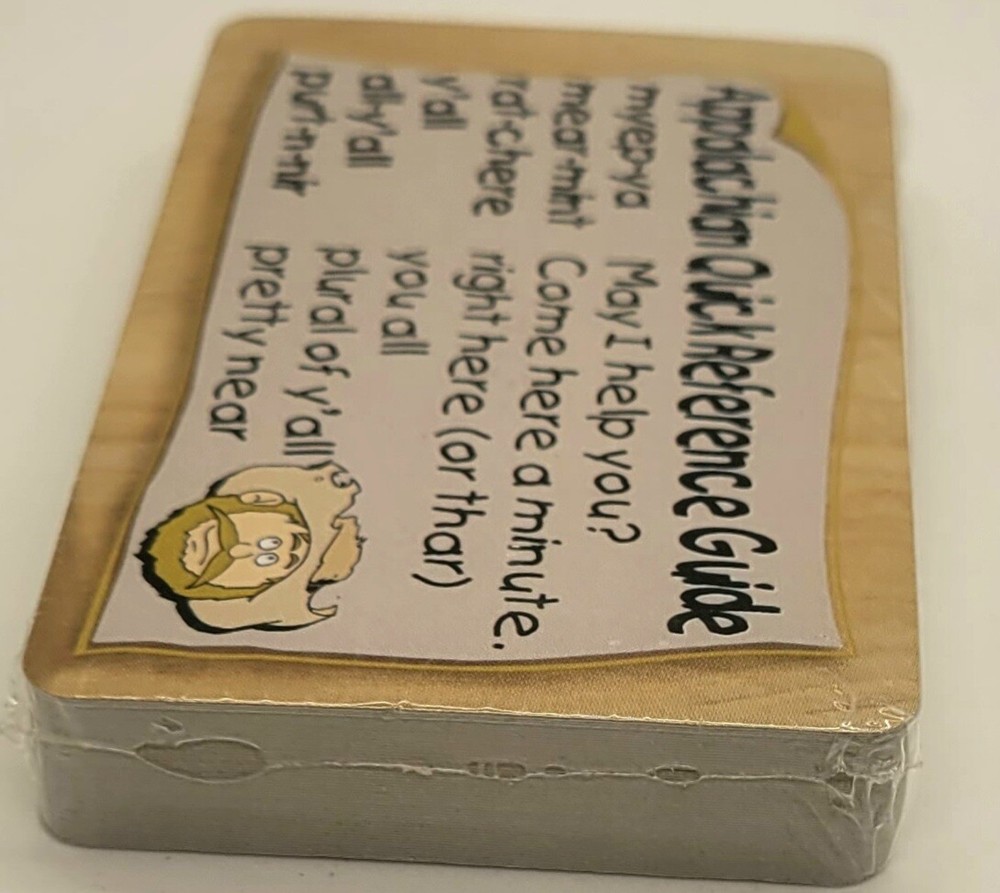 Appalachian Quick Reference Guide
myep-ya May I help you?
mear-mint Come here a minute.
rat-chere right here (or thar)
y'all you all
all-y'all plural of y'all
purt-n-nir pretty near